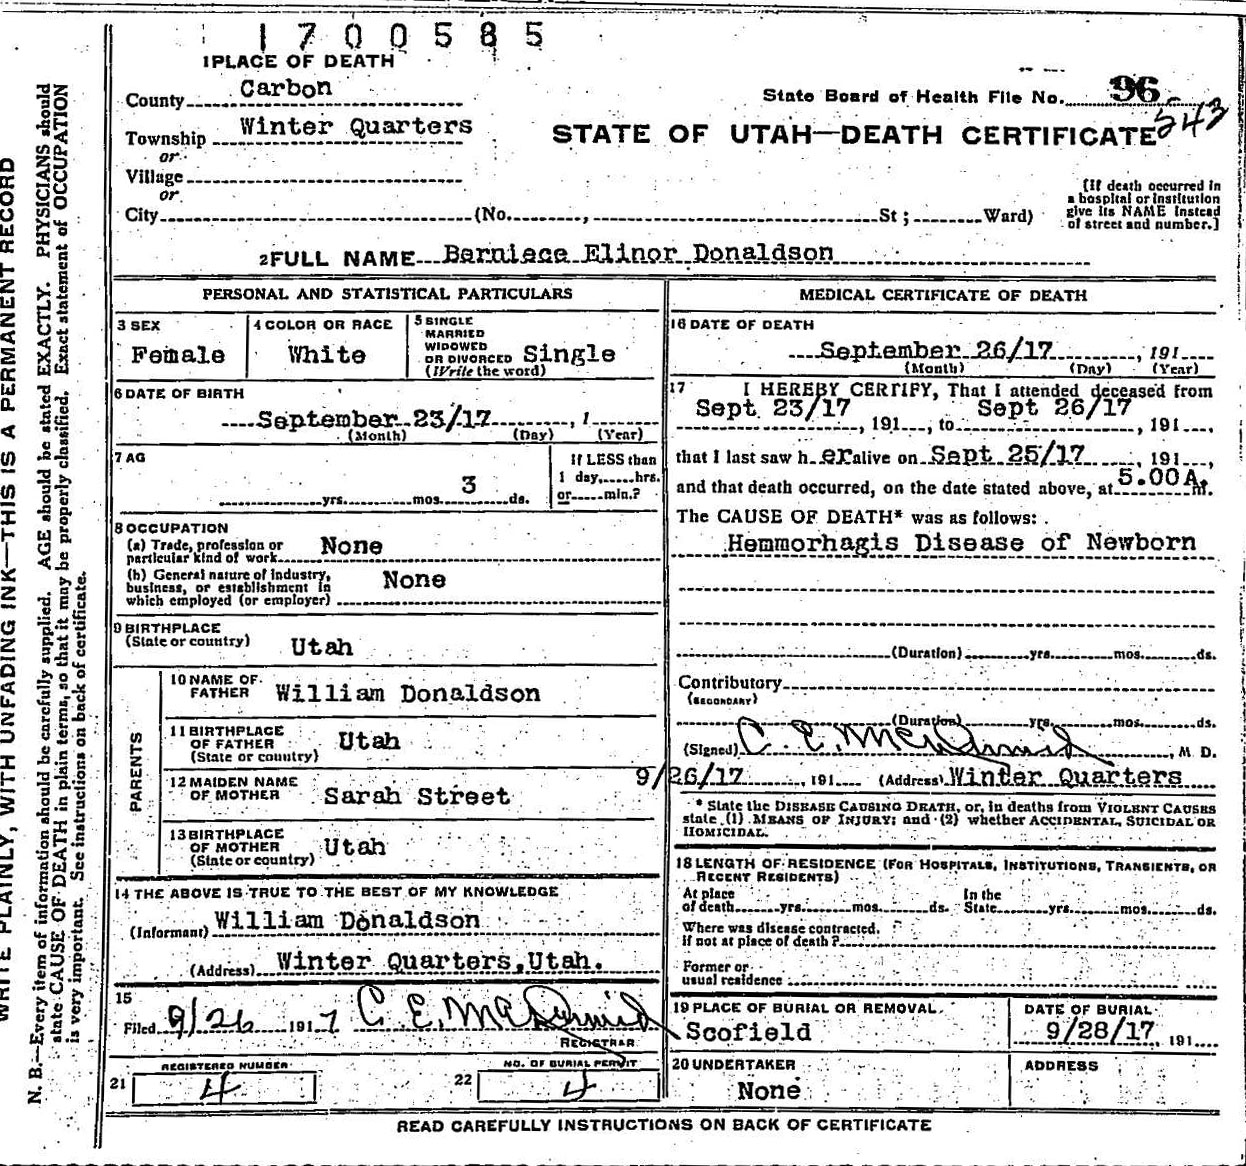 1700585
1 PLACE OF DEATH
County Carbon
State Board of Health File No. 96
543
Township Winter Quarters
or
STATE OF UTAH—DEATH CERTIFICATE
Village
or
City (No. , St ; Ward)
(If death occurred in
a hospital or institution
give its NAME instead
of street and number.]
2 FULL NAME Berniece Elinor Donaldson
PERSONAL AND STATISTICAL PARTICULARS
3 SEX
Female
4 COLOR OR RACE
White
5 SINGLE
MARRIED
WIDOWED
OR DIVORCED Single
(Write the word)
6 DATE OF BIRTH
September 23/17 , 1
(Month) (Day) (Year)
7 AG
yrs. mos. 3 ds.
If LESS than
1 day, hrs.
or min.?
8 OCCUPATION
(a) Trade, profession or
particular kind of work None
(b) General nature of industry,
business, or establishment in
which employed (or employer) None
9 BIRTHPLACE
(State or country) Utah
PARENTS
10 NAME OF
FATHER William Donaldson
11 BIRTHPLACE
OF FATHER
(State or country) Utah
12 MAIDEN NAME
OF MOTHER Sarah Street
13 BIRTHPLACE
OF MOTHER
(State or country) Utah
14 THE ABOVE IS TRUE TO THE BEST OF MY KNOWLEDGE
(Informant) William Donaldson
(Address) Winter Quarters,Utah.
15
Filed 9/26 1917 C. E. McDermid
REGISTRAR
REGISTERED NUMBER
21 4
NO. OF BURIAL PERMIT
22 4
MEDICAL CERTIFICATE OF DEATH
16 DATE OF DEATH
September 26/17 , 191
(Month) (Day) (Year)
17 I HEREBY CERTIFY, That I attended deceased from
Sept 23/17 , 191 , to Sept 26/17 , 191 ,
that I last saw h er alive on Sept 25/17 , 191 ,
and that death occurred, on the date stated above, at 5.00 A. m.
The CAUSE OF DEATH* was as follows:
Hemmorhagis Disease of Newborn
(Duration) yrs. mos. ds.
Contributory
(SECONDARY)
(Duration) yrs. mos. ds.
(Signed) C. E. McDermid , M D.
9/26/17 , 191 (Address) Winter Quarters
* State the DISEASE CAUSING DEATH, or, in deaths from VIOLENT CAUSES
state (1) MEANS OF INJURY; and (2) whether ACCIDENTAL, SUICIDAL OR
HOMICIDAL.
18 LENGTH OF RESIDENCE (FOR HOSPITALS, INSTITUTIONS, TRANSIENTS, OR
RECENT RESIDENTS)
At place
of death yrs. mos. ds.
In the
State yrs. mos. ds.
Where was disease contracted,
if not at place of death?
Former or
usual residence
19 PLACE OF BURIAL OR REMOVAL
Scofield
DATE OF BURIAL
9/28/17 , 191
20 UNDERTAKER
None
ADDRESS
READ CAREFULLY INSTRUCTIONS ON BACK OF CERTIFICATE
WRITE PLAINLY, WITH UNFADING INK—THIS IS A PERMANENT RECORD
N. B.—Every item of information should be carefully supplied. AGE should be stated EXACTLY. PHYSICIANS should
state CAUSE OF DEATH in plain terms, so that it may be properly classified. Exact statement of OCCUPATION
is very important. See instructions on back of certificate.